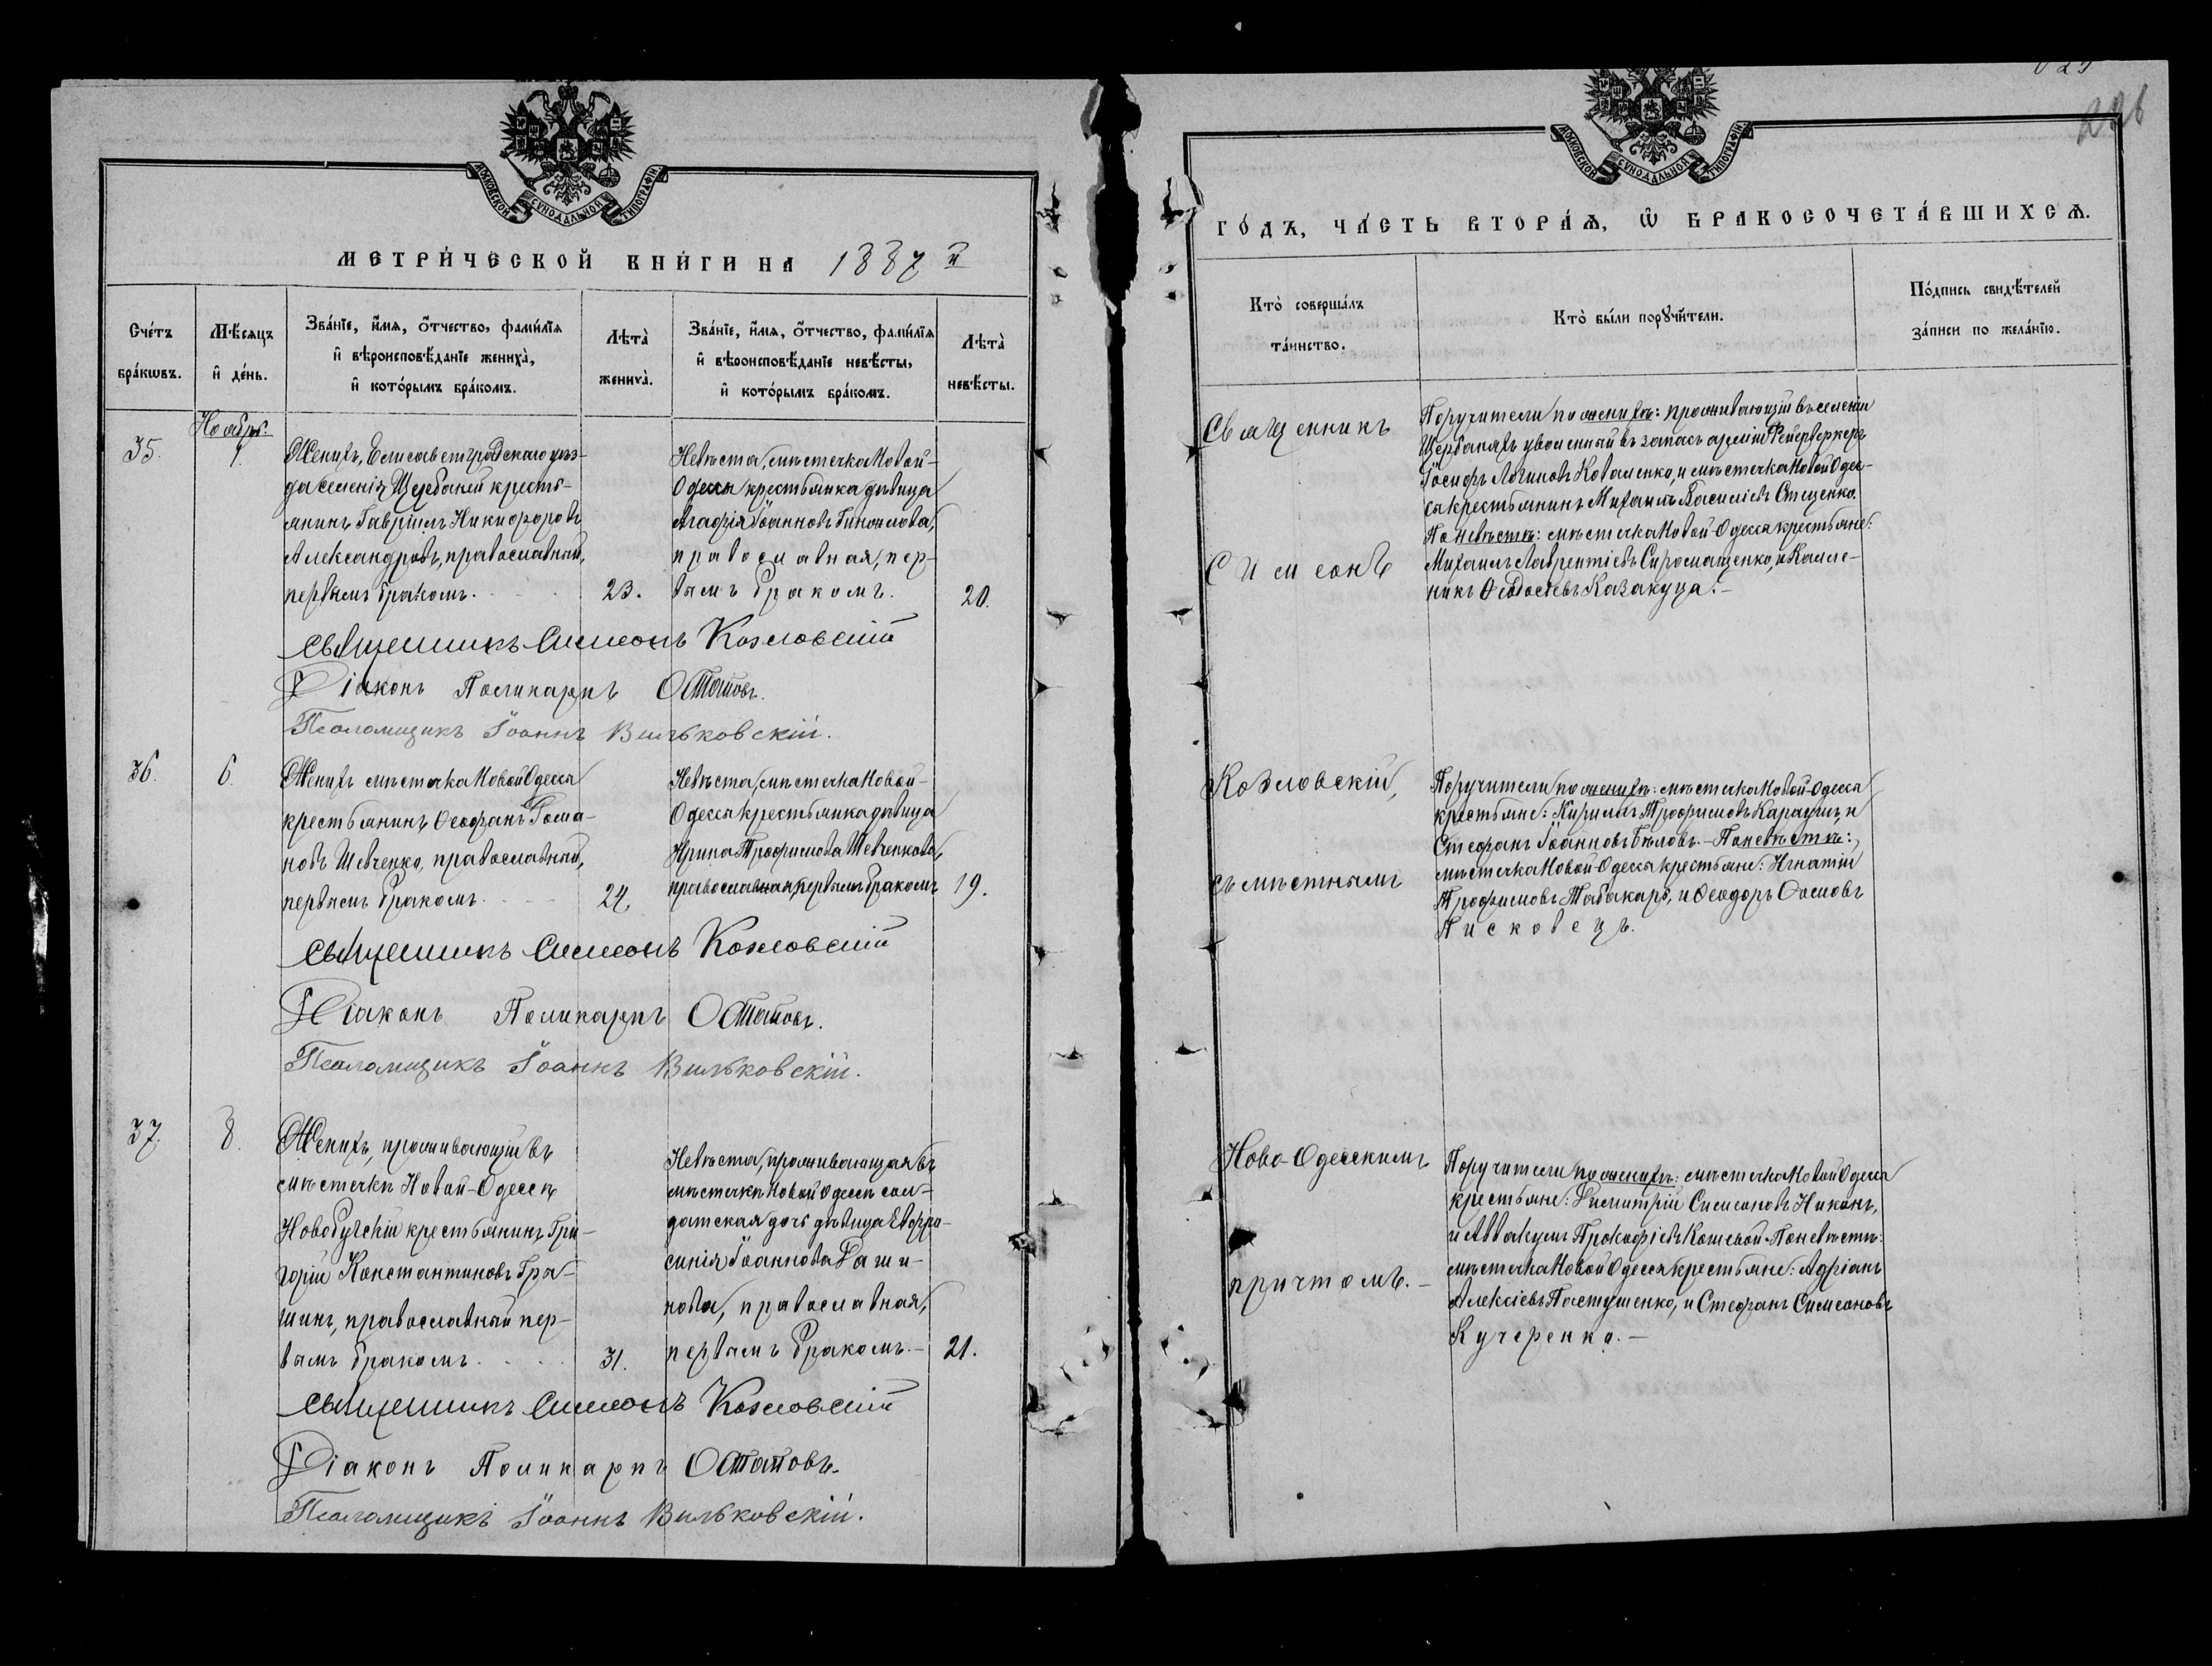 МОСКОВСКОЙ СУНОДАЛЬНОЙ ТИПОГРАФІИ
МЕТРИ́ЧЕСКОЙ КНИ́ГИ НА 1887 й
Сче́тъ бра́кѡвъ.
Мѣ́сяцъ и҆ де́нь.
Зва́нїе, и҆́мѧ, ѻ҆́тчество, фами́лїѧ
и҆ вѣроисповѣ́данїе жениха̀,
и҆ кото́рымъ бра́комъ.
Лѣта̀ жениха̀.
Зва́нїе, и҆́мѧ, ѻ҆́тчество, фами́лїѧ
и҆ вѣроисповѣ́данїе невѣ́сты,
и҆ кото́рымъ бра́комъ.
Лѣта̀ невѣ́сты.
Ноябрь.
35.
1.
Женихъ, Елисаветградскаго уѣз-
да селенія Щербаней кресть-
янинъ Гавріилъ Никифоровъ
Александровъ, православный,
первымъ бракомъ.
23.
Невѣста, мѣстечка Новой-
Одессы крестьянка дѣвица
Агафія Іоаннова
православная, пер-
вымъ бракомъ.
20.
Священникъ Симеонъ Козловскій
Діаконъ Поликарпъ
Псаломщикъ Іоаннъ Вильковскій.
36.
6.
Женихъ мѣстечка Новой Одессы
крестьянинъ Ѳеофанъ Рома-
новъ Шевченко, православный,
первымъ бракомъ
24.
Невѣста, мѣстечка Новой-
Одессы крестьянка дѣвица
Ирина Трофимова Шевченкова,
православная, первымъ бракомъ
19.
Священникъ Симеонъ Козловскій
Діаконъ Поликарпъ
Псаломщикъ Іоаннъ Вильковскій.
37.
8.
Женихъ, проживающій въ
мѣстечкѣ Новой-Одессѣ
Новобугскій крестьянинъ Гри-
горій Константиновъ Гра-
шинъ, православный пер-
вымъ бракомъ.
31.
Невѣста, проживающая въ
мѣстечкѣ Новой Одессѣ сол-
датская дочь дѣвица Евфро-
синія Іоаннова
нова, православная,
первымъ бракомъ.–
21.
Священникъ Симеонъ Козловскій
Діаконъ Поликарпъ
Псаломщикъ Іоаннъ Вильковскій.
МОСКОВСКОЙ СУНОДАЛЬНОЙ ТИПОГРАФІИ
ГО́ДЪ, ЧА́СТЬ ВТОРА́Ѧ, Ѡ҆ БРАКОСОЧЕТА́ВШИХСѦ.
Кто̀ соверша́лъ
та́инство.
Кто̀ бы́ли порꙋчи́тели.
По́дпись свидѣ́телей
за́писи по жела́нїю.
Священникъ
Симеонъ
Козловскій,
съ мѣстнымъ
Ново-Одесскимъ
причтомъ.–
Поручители по женихѣ: проживающій въ селеніи
Щербаняхъ уволенный въ запасъ арміи Фейерверкеръ
Іосифъ Логиновъ Коваленко, и мѣстечка Новой Одес-
сы крестьянинъ Михаилъ Василіевъ Стеценко.
По невѣстѣ: мѣстечка Новой-Одессы крестьяне:
Михаилъ Лаврентіевъ Сиромащенко, и Калле-
никъ Ѳеодосіевъ Казакуца.–
Поручители по женихѣ: мѣстечка Новой-Одессы
крестьяне: Кириллъ Трофимовъ и
Стефанъ Іоанновъ Бѣловъ.– По невѣстѣ:
мѣстечка Новой-Одессы крестьяне: Игнатій
Трофимовъ Табакарь, и Ѳеодоръ Ѳомовъ
Писковецъ.
Поручители по женихѣ: мѣстечка Новой Одессы
крестьяне: Димитрій Симеоновъ Никонъ,
и Аввакумъ Прокофіевъ Кошевой. По невѣстѣ:
мѣстечка Новой Одессы крестьяне: Адріанъ
Алексіевъ Пастушенко, и Стефанъ Симеоновъ
Кучеренко.–